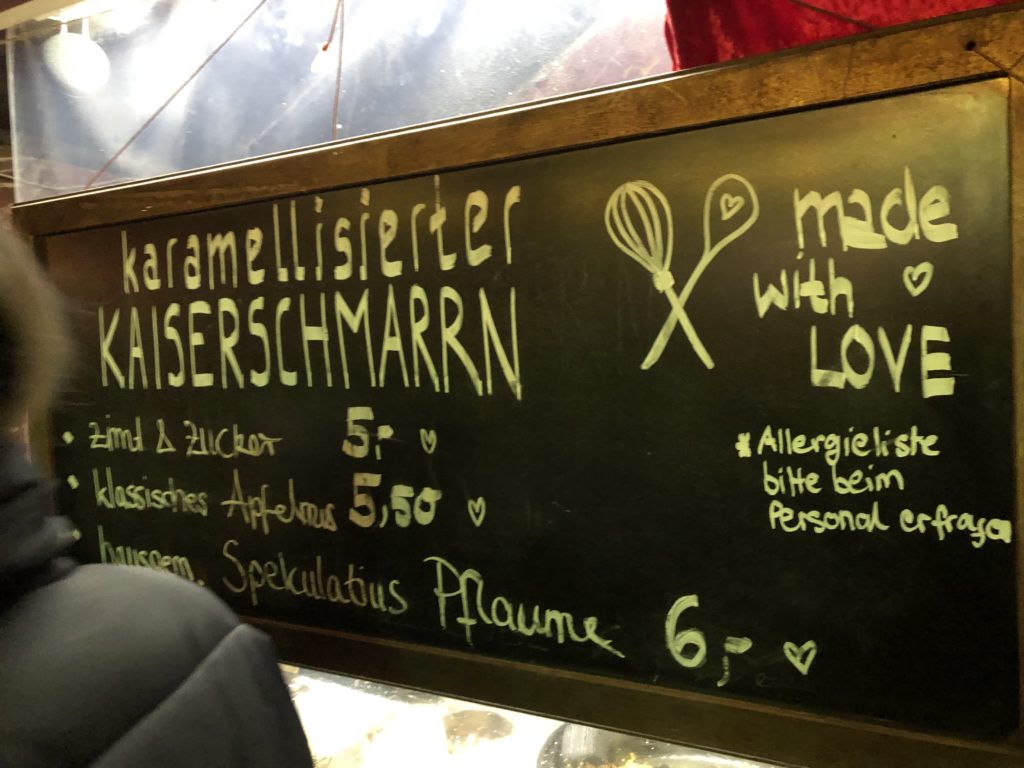 karamellisierter
KAISERSCHMARRN
• Zimt & Zucker 5,-
• klassisches Apfelmus 5,50
• hausgem. Spekulatius Pflaume 6,-
made
with
LOVE
* Allergieliste
bitte beim
Personal erfragen